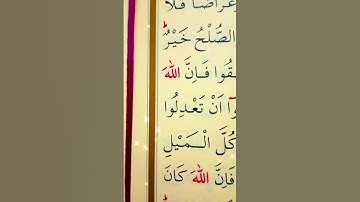 عْرَاضًا فَلَا
الصُّلْحُ خَيْرٌ
قُوا فَاِنَّ اللّٰهَ
وا اَنْ تَعْدِلُوا
كُلَّ الْمَيْلِ
فَاِنَّ اللّٰهَ كَانَ